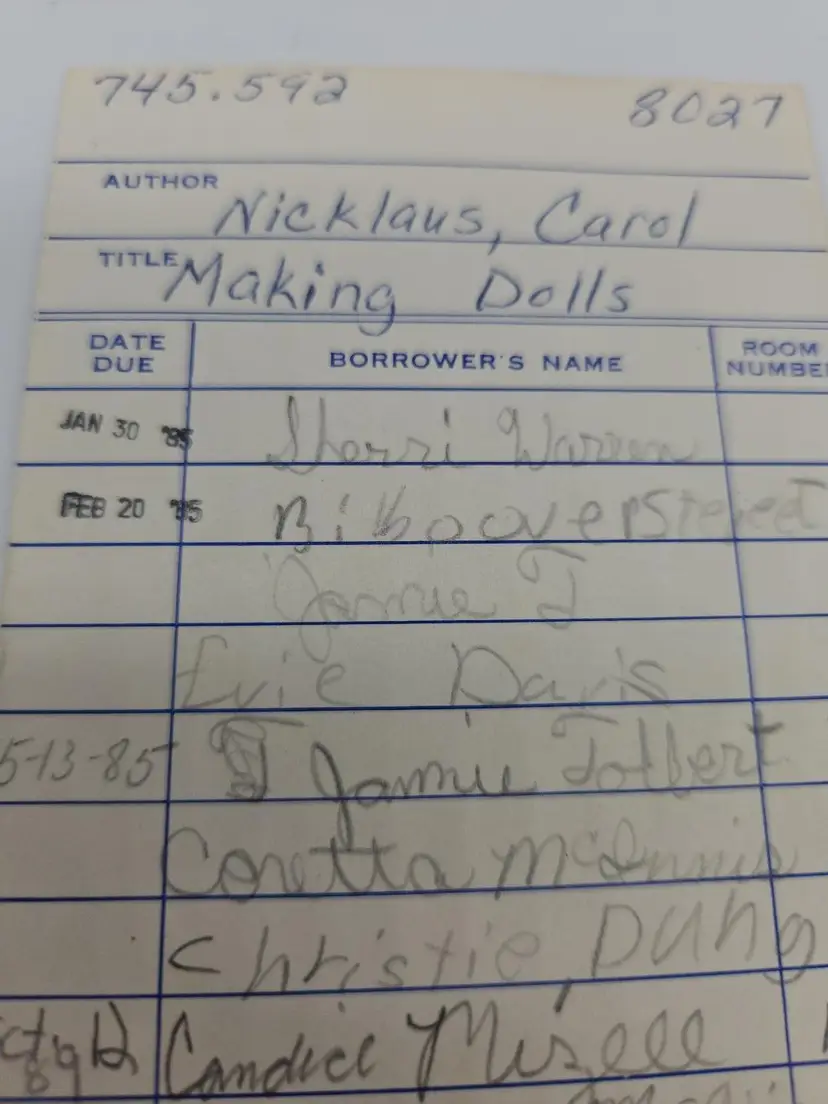 745.592 8027
AUTHOR Nicklaus, Carol
TITLE Making Dolls
DATE DUE BORROWER'S NAME ROOM NUMBER
JAN 30 '85 Sherri Warren
FEB 20 '85
Jamie T
Evie Davis
5-13-85 Jamie Tolbert
Coretta McInnis
Christie Dung
Candice Mizell